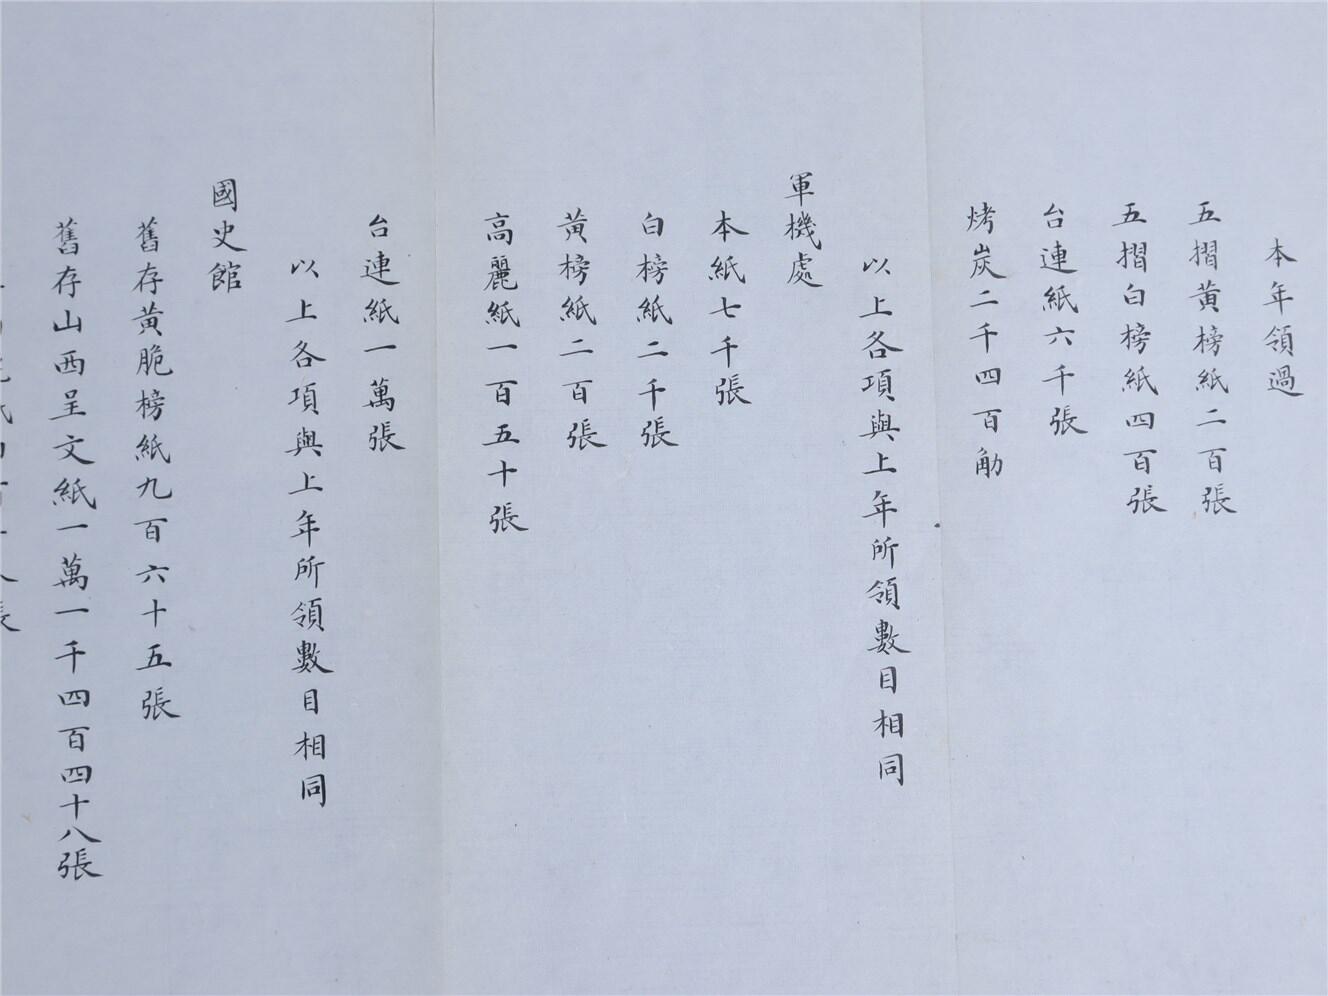 本年領過
五摺黃榜紙二百張
五摺白榜紙四百張
台連紙六千張
烤炭二千四百觔
以上各項與上年所領數目相同
軍機處
本紙七千張
白榜紙二千張
黃榜紙二百張
高麗紙一百五十張
台連紙一萬張
以上各項與上年所領數目相同
國史館
舊存黃脆榜紙九百六十五張
舊存山西呈文紙一萬一千四百四十八張